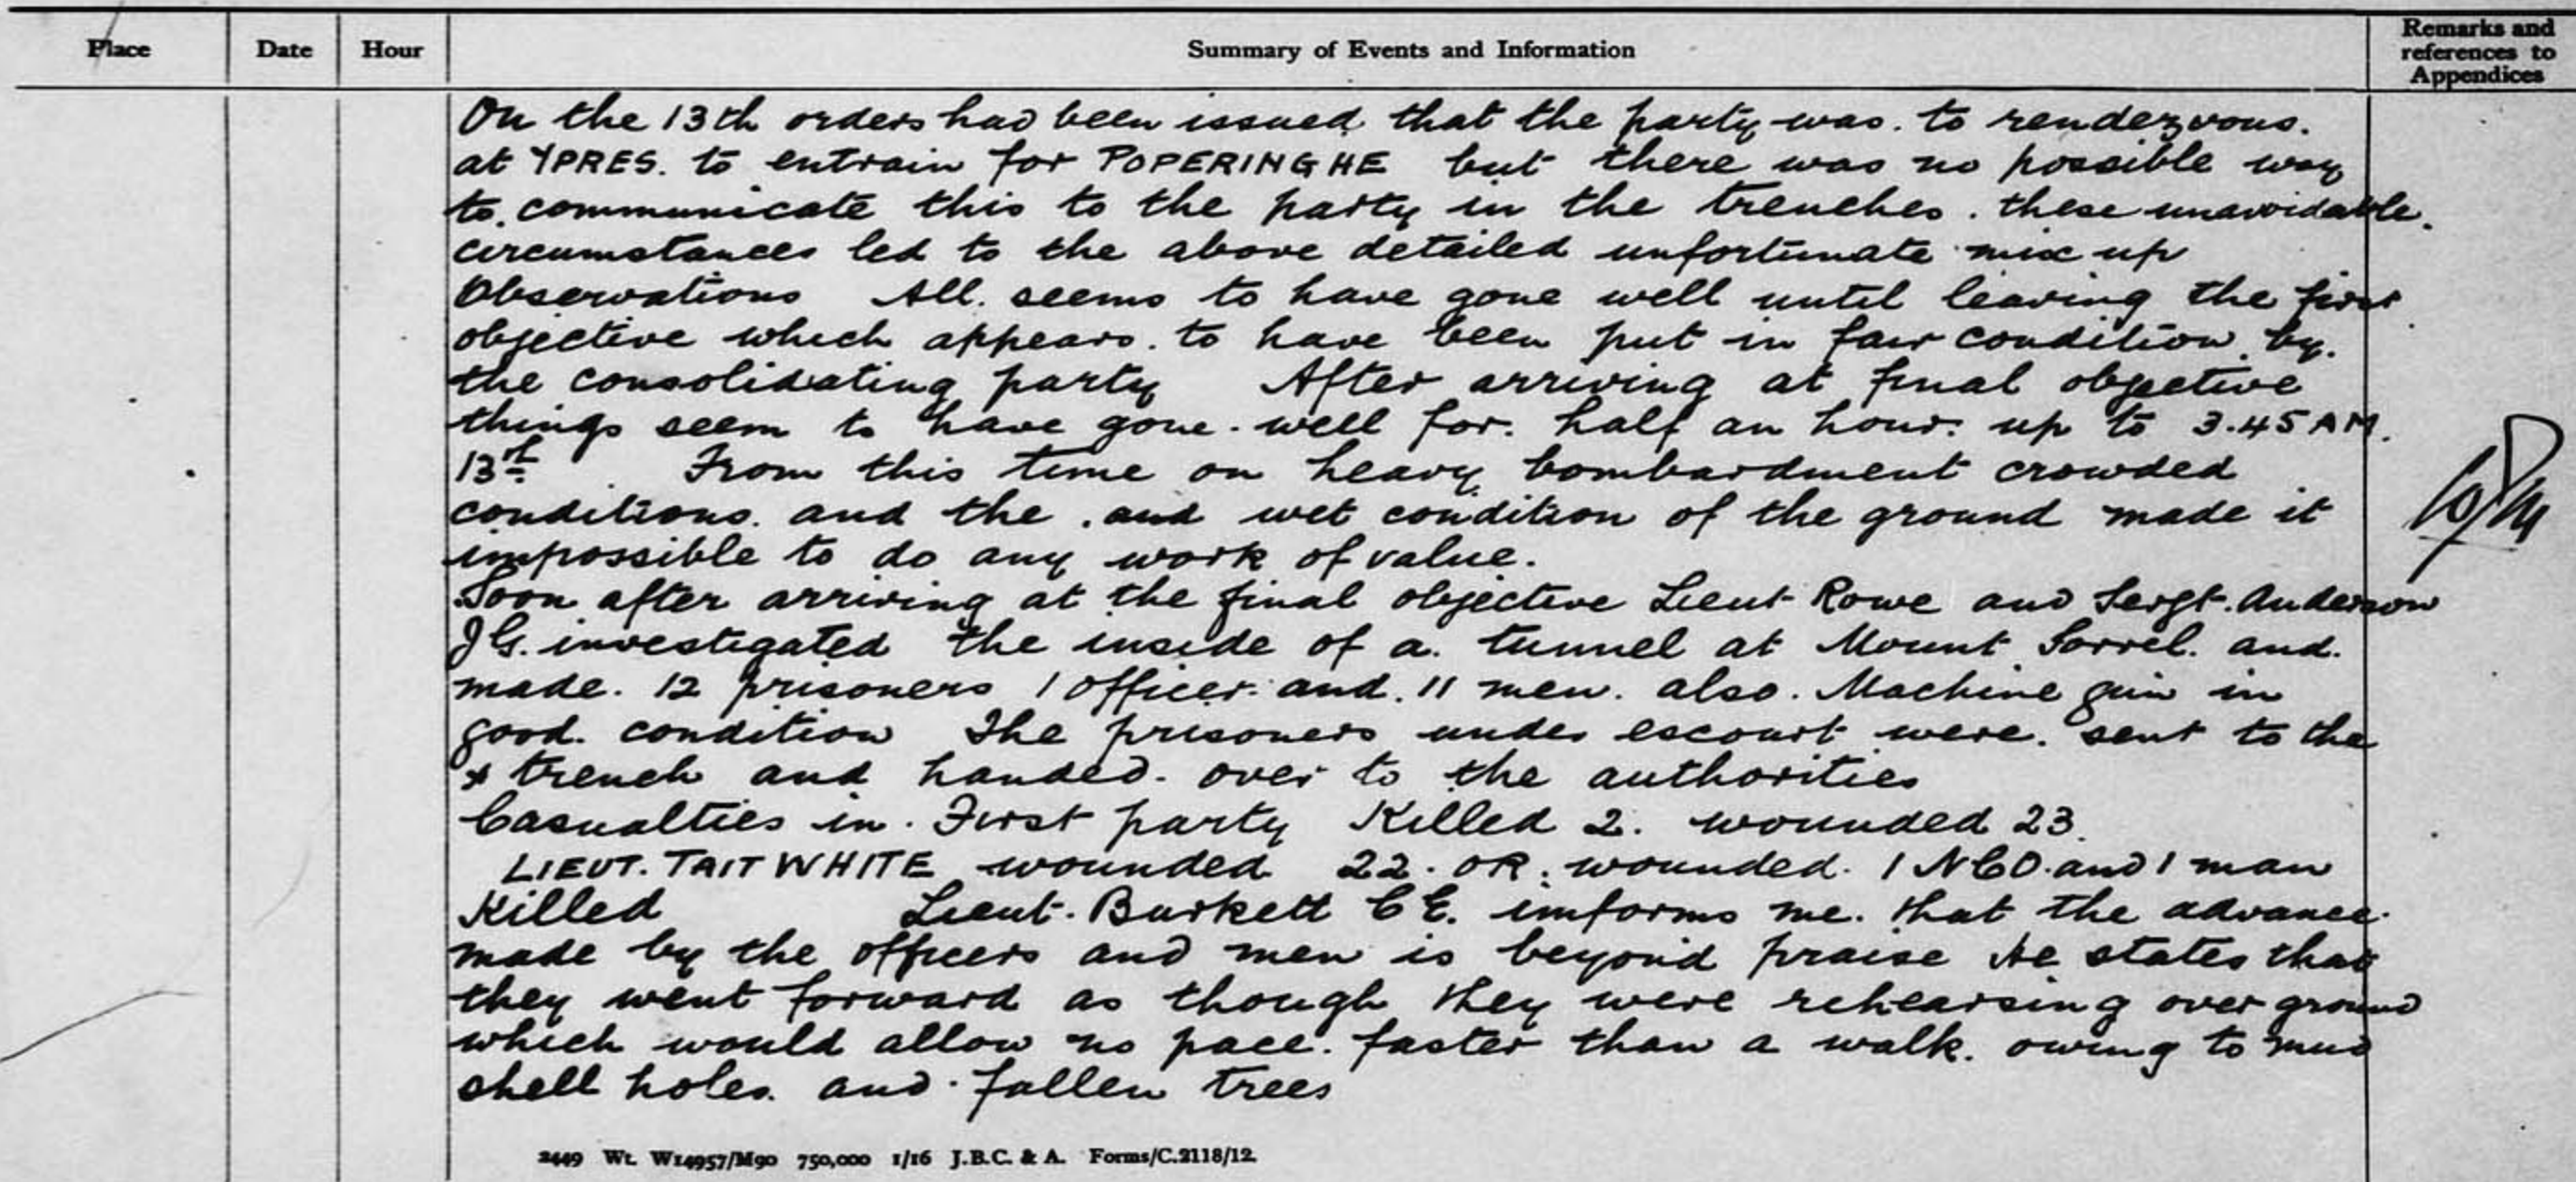 Place Date Hour Summary of Events and Information Remarks and references to Appendices
On the 13th orders had been issued that the party was. to rendezvous.
at YPRES. to entrain for POPERINGHE but there was no possible way
to. communicate this to the party in the trenches. these unavoidable.
circumstances led to the above detailed unfortunate mix up
Observations All. seems to have gone well until leaving the first
objective which appears. to have been put in fair condition by.
the consolidating party After arriving at final objective
things seem to have gone. well for. half an hour. up to 3.45 AM.
13th From this time on heavy bombardment crowded
conditions. and the . and wet condition of the ground made it
impossible to do any work of value.
Soon after arriving at the final objective Lieut Rowe and Sergt. Anderson
J G. investigated the inside of a. tunnel at Mount Sorrel. and.
made. 12 prisoners 1 officer. and. 11 men. also. Machine gun in
good. condition The prisoners under escourt were. sent to the
trench and handed. over to the authorities
Casualties in. First party Killed 2. wounded 23.
LIEUT. TAIT WHITE wounded 22. OR. wounded. 1 NCO. and 1 man
Killed Lieut. Burkett C E. imforms me. that the advance.
made by the officers and men is beyond praise He states that
they went forward as though they were rehearsing over ground
which would allow no pace. faster than a walk. owing to mud
shell holes. and. fallen trees
2449 Wt. W14957/M90 750,000 1/16 J.B.C. & A. Forms/C.2118/12.